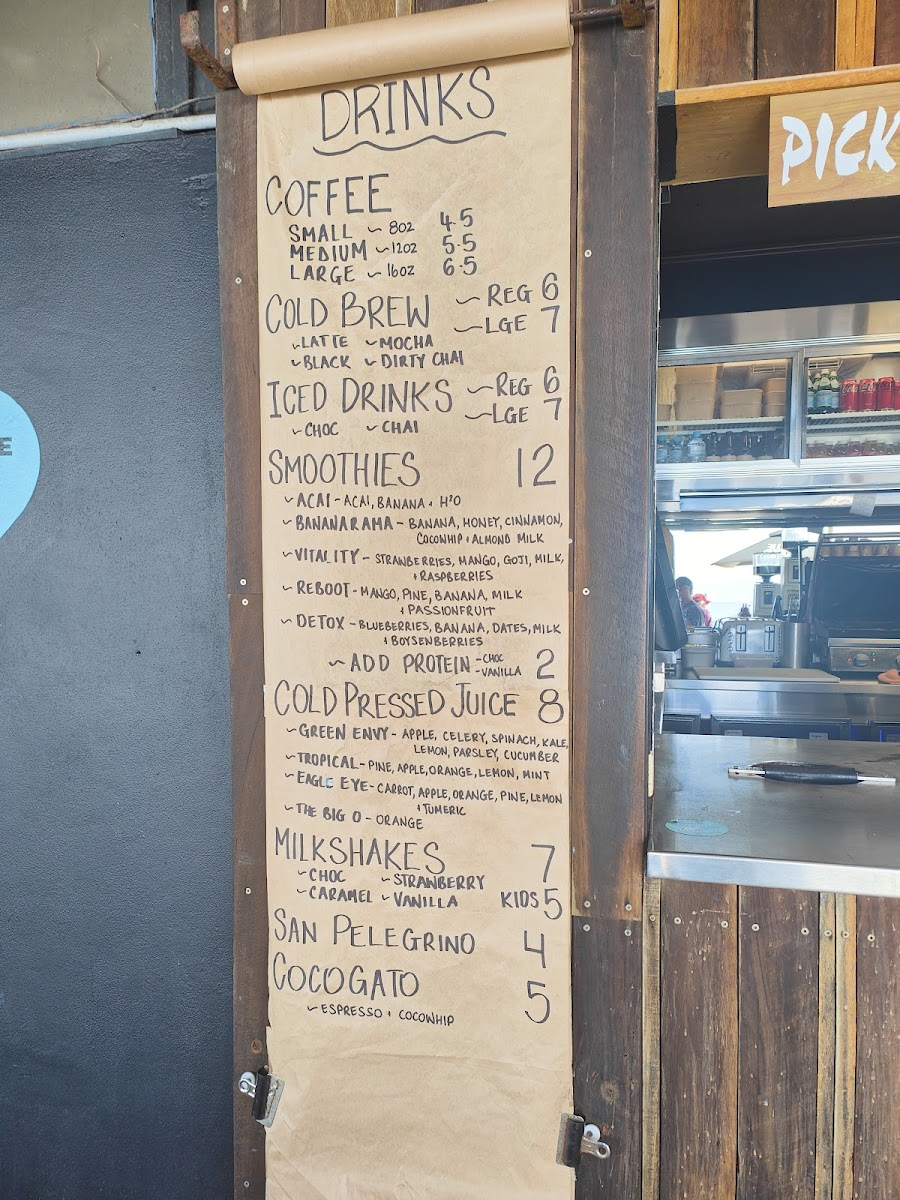 DRINKS
COFFEE
SMALL ~ 8oz 4.5
MEDIUM ~ 12oz 5.5
LARGE ~ 16oz 6.5
COLD BREW ~ REG 6
~ LGE 7
~ LATTE ~ MOCHA
~ BLACK ~ DIRTY CHAI
ICED DRINKS ~ REG 6
~ LGE 7
~ CHOC ~ CHAI
SMOOTHIES 12
~ ACAI - ACAI, BANANA + H²O
~ BANANARAMA - BANANA, HONEY, CINNAMON,
COCOWHIP + ALMOND MILK
~ VITALITY - STRANBERRIES, MANGO, GOJI, MILK,
+ RASPBERRIES
~ REBOOT - MANGO, PINE, BANANA, MILK
+ PASSIONFRUIT
~ DETOX - BLUEBERRIES, BANANA, DATES, MILK
+ BOYSENBERRIES
~ ADD PROTEIN - CHOC 2
- VANILLA
COLD PRESSED JUICE 8
~ GREEN ENVY - APPLE, CELERY, SPINACH, KALE,
LEMON, PARSLEY, CUCUMBER
~ TROPICAL - PINE, APPLE, ORANGE, LEMON, MINT
~ EAGLE EYE - CARROT, APPLE, ORANGE, PINE, LEMON
+ TUMERIC
~ THE BIG O - ORANGE
MILKSHAKES 7
~ CHOC ~ STRAWBERRY
~ CARAMEL ~ VANILLA KIDS 5
SAN PELEGRINO 4
COCOGATO 5
~ ESPRESSO + COCOWHIP
PICK
E